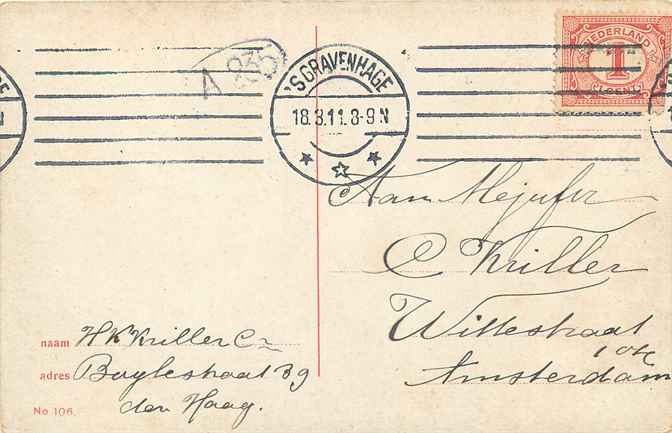 A 235
'S GRAVENHAGE
18.3.11.8-9 N
NEDERLAND
1
CENT
Aan Mejufvr
C Kriller
Wittestraat
104
Amsterdam
naam H K Kriller Cz
adres Buylestraat 39
den Haag.
No 106.